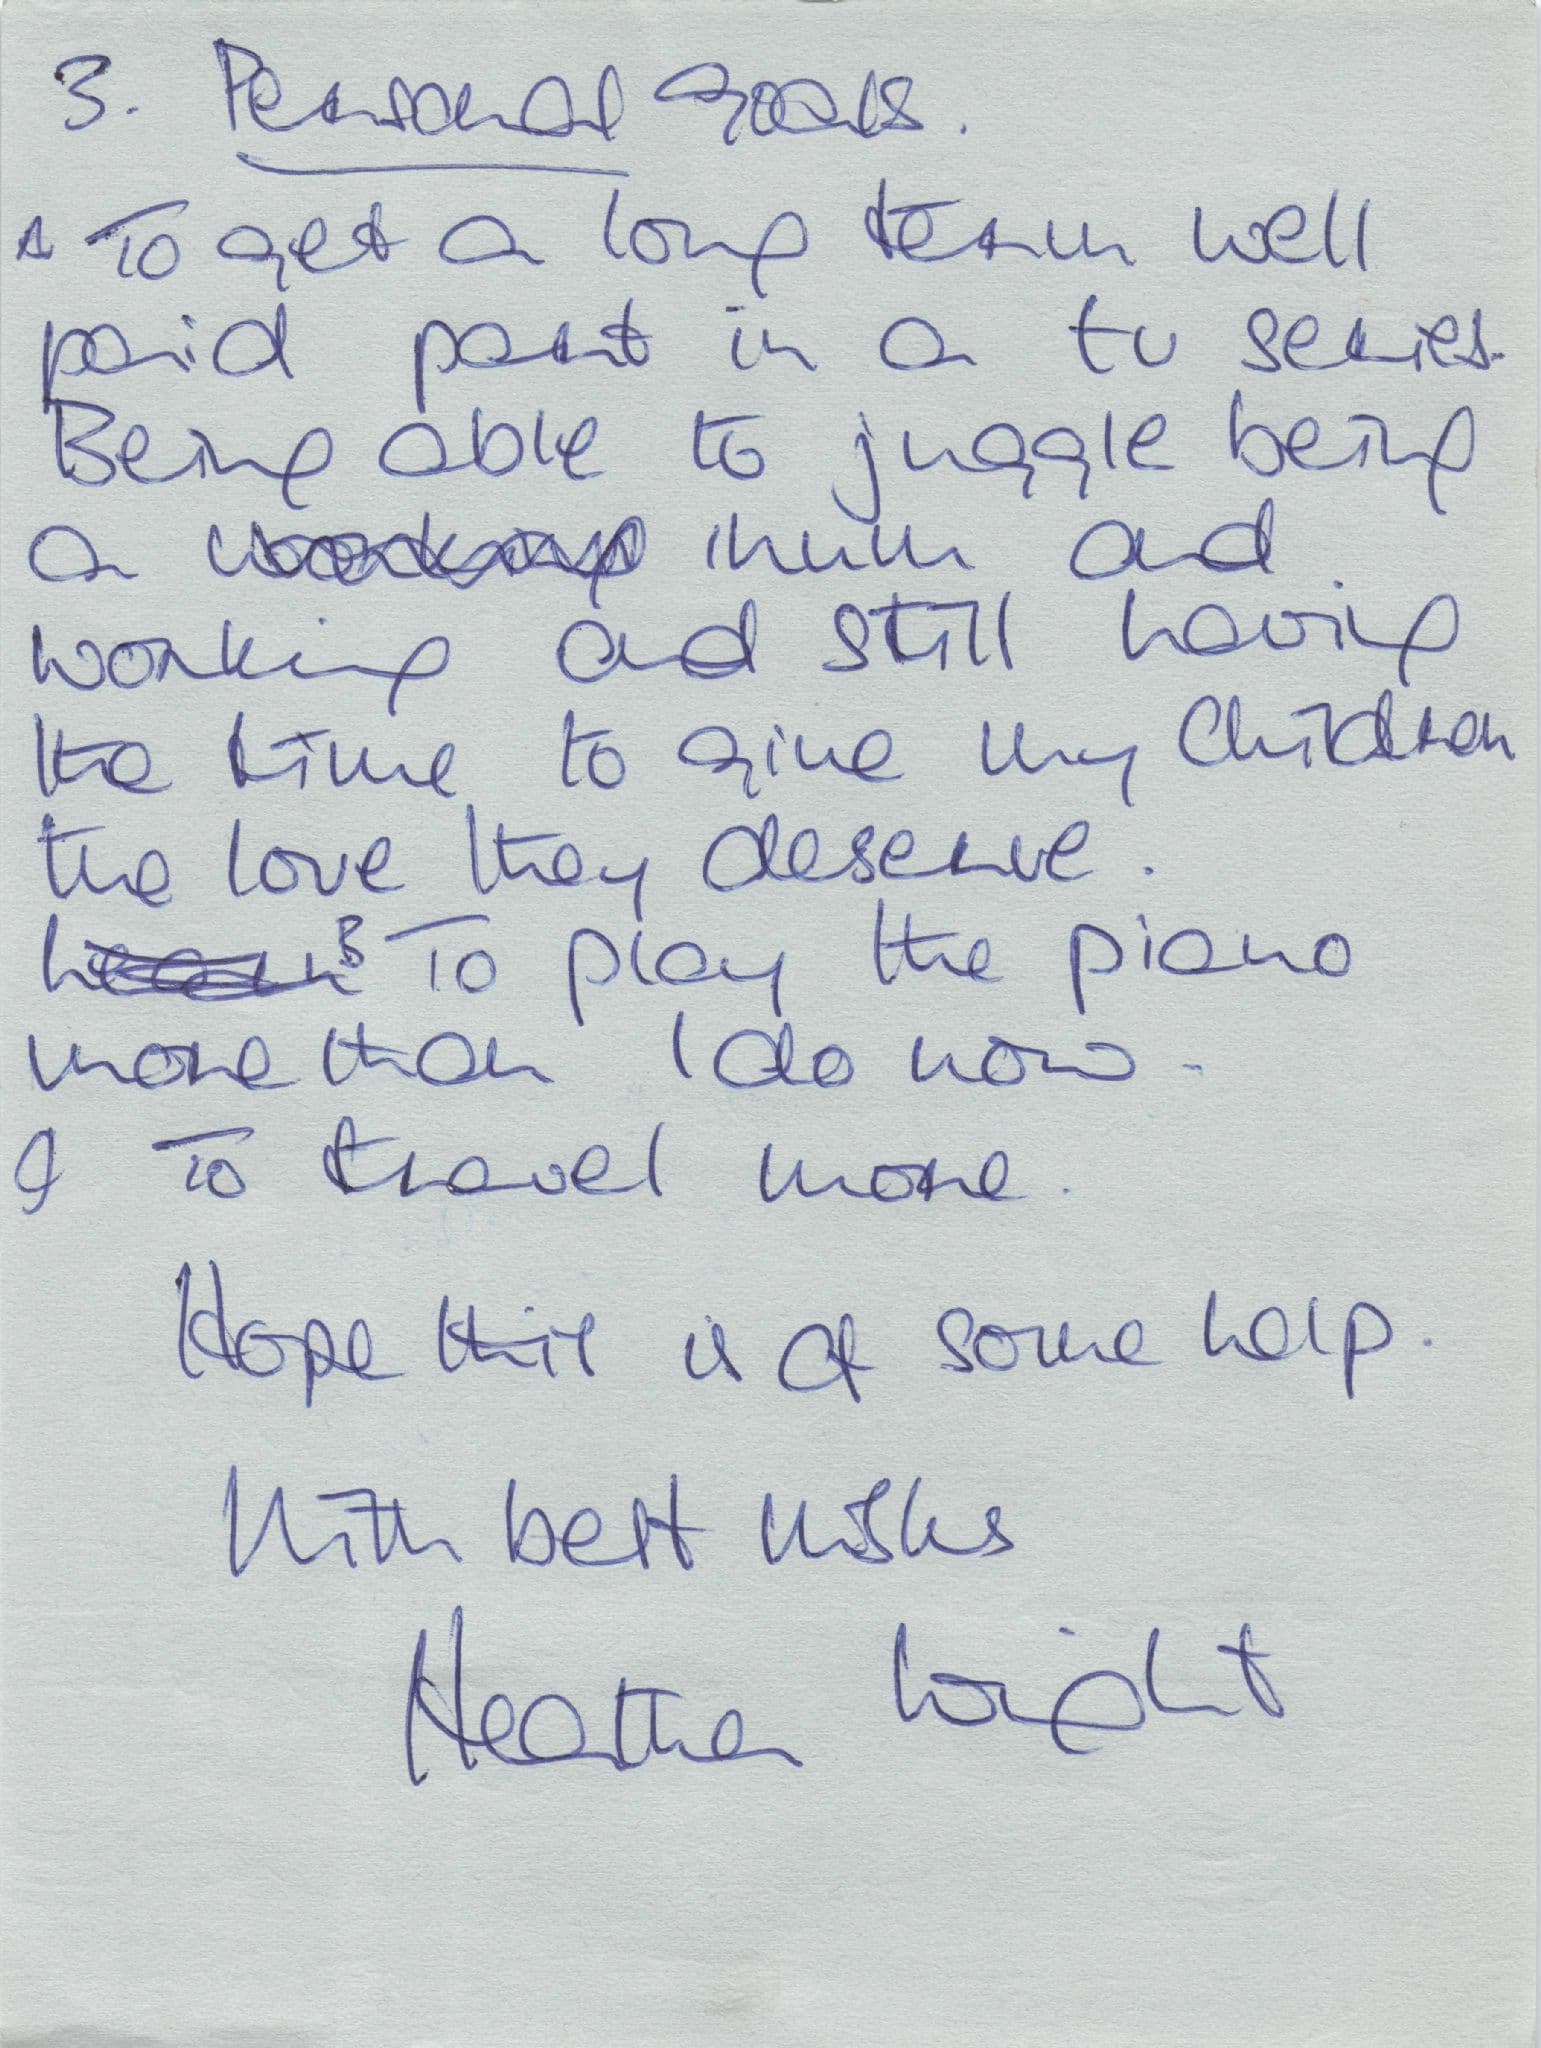 3. Personal goals.
A To get a long term well
paid part in a tv series.
Being able to juggle being
a working mum and
working and still having
the time to give my Children
the love they deserve.
B To play the piano
more than I do now.
To travel more.
Hope this is of some help.
With best wishes
Heather Wright